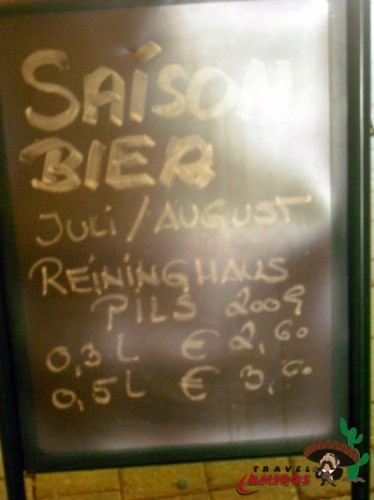 SAISON
BIER
JULI / AUGUST
REININGHAUS
PILS 2009
0,3 L € 2,60
0,5 L € 3,60
TRAVEL
AMIGOS